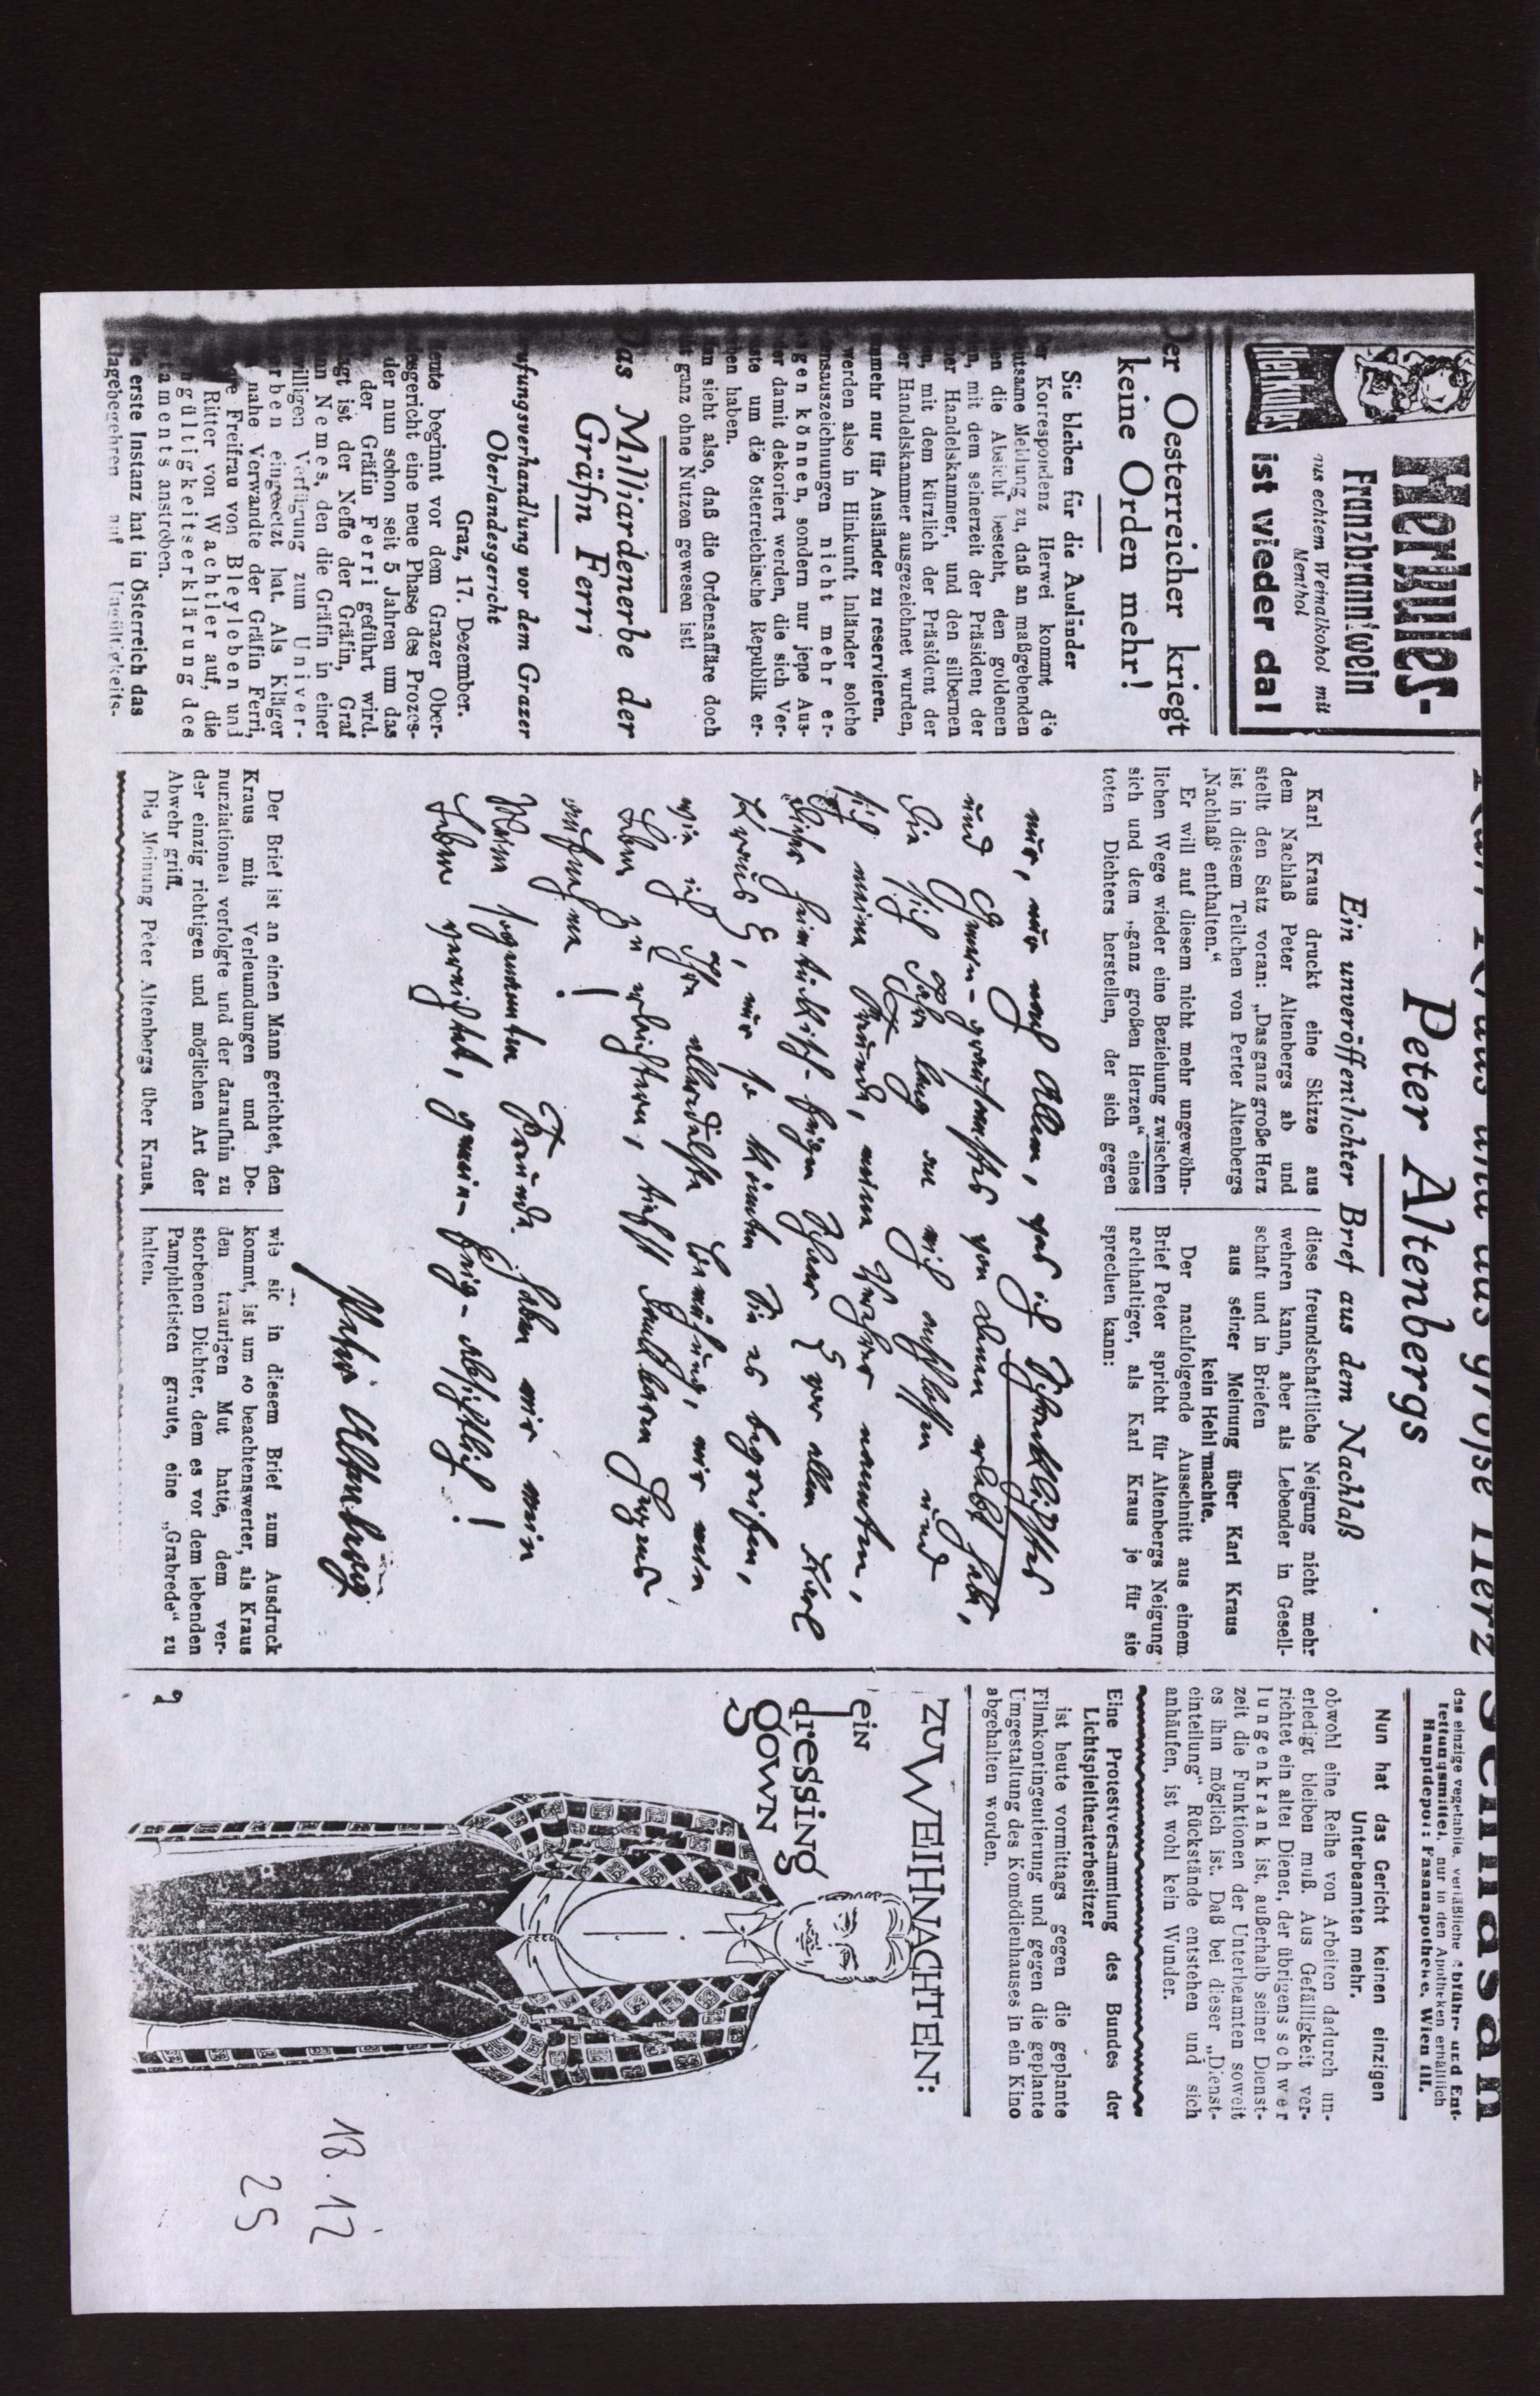 Herkules-
Franzbranntwein
aus echtem Weinalkohol mit
Menthol
ist wieder da!
Herkules
Der Oesterreicher kriegt
keine Orden mehr!
Sie bleiben für die Ausländer
Korrespondenz Herwei kommt die
Meldung zu, daß an maßgebenden
die Absicht besteht, den goldenen
mit dem seinerzeit der Präsident der
Handelskammer, und den silbernen
mit dem kürzlich der Präsident der
Handelskammer ausgezeichnet wurden,
mehr nur für Ausländer zu reservieren.
werden also in Hinkunft Inländer solche
auszeichnungen nicht mehr er-
gen können, sondern nur jene Aus-
damit dekoriert werden, die sich Ver-
um die österreichische Republik er-
haben.
sieht also, daß die Ordensaffäre doch
ganz ohne Nutzen gewesen ist!
Das Milliardenerbe der
Gräfin Ferri
ufungsverhandlung vor dem Grazer
Oberlandesgericht
Graz, 17. Dezember.
Heute beginnt vor dem Grazer Ober-
esgericht eine neue Phase des Prozes-
der nun schon seit 5 Jahren um das
der Gräfin Ferri geführt wird.
agt ist der Neffe der Gräfin, Graf
nn Nemes, den die Gräfin in einer
willigen Verfügung zum Univer-
rben eingesetzt hat. Als Kläger
nahe Verwandte der Gräfin Ferri,
Freifrau von Bleyleben und
Ritter von Wachtler auf, die
ngültigkeitserklärung des
taments anstreben.
erste Instanz hat in Österreich das
lagebegehren auf Ungültigkeits-
Karl Kraus und das große Herz
Peter Altenbergs
Ein unveröffentlichter Brief aus dem Nachlaß
Karl Kraus druckt eine Skizze aus
dem Nachlaß Peter Altenbergs ab und
stellt den Satz voran: „Das ganz große Herz
ist in diesem Teilchen von Perter Altenbergs
‚Nachlaß‘ enthalten.“
Er will auf diesem nicht mehr ungewöhn-
lichen Wege wieder eine Beziehung zwischen
sich und dem „ganz großen Herzen“ eines
toten Dichters herstellen, der sich gegen
diese freundschaftliche Neigung nicht mehr
wehren kann, aber als Lebender in Gesell-
schaft und in Briefen
aus seiner Meinung über Karl Kraus
kein Hehl machte.
Der nachfolgende Ausschnitt aus einem
Brief Peter spricht für Altenbergs Neigung
nachhaltiger, als Karl Kraus je für sie
sprechen kann:
nur, nur nach Allem, was ich Schrecklichstes
und Gemein-grausamstes von denen erlebt habe,
die sich Jahre lang an mich anschlossen und
sich meine Freunde, meine Verehrer nannten,
dieser heimtückisch-feigen Schaar (vor allem Karl
Kraus), nur so können Sie es begreifen,
wie ich Ihre alleredelste Bemühung, mir mein
Leben zu erleichtern, tiefst dankbaren Herzens
aufnehme!
Meine sogenannten Freunde haben mir mein
Leben vernichtet, gemein-feig-absichtlich!
Peter Altenberg
Der Brief ist an einen Mann gerichtet, den
Kraus mit Verleumdungen und De-
nunziationen verfolgte und der daraufhin zu
der einzig richtigen und möglichen Art der
Abwehr griff.
Die Meinung Peter Altenbergs über Kraus,
wie sie in diesem Brief zum Ausdruck
kommt, ist um so beachtenswerter, als Kraus
den traurigen Mut hatte, dem ver-
storbenen Dichter, dem es vor dem lebenden
Pamphletisten graute, eine „Grabrede“ zu
halten.
das einzige vegetabile, verläßliche Abführ- und Ent-
fettungsmittel, nur in den Apotheken erhältlich
Hauptdepot: Fasanapotheke, Wien III.
Nun hat das Gericht keinen einzigen
Unterbeamten mehr.
obwohl eine Reihe von Arbeiten dadurch un-
erledigt bleiben muß. Aus Gefälligkeit ver-
richtet ein alter Diener, der übrigens schwer
lungenkrank ist, außerhalb seiner Dienst-
zeit die Funktionen der Unterbeamten soweit
es ihm möglich ist. Daß bei dieser „Dienst-
einteilung“ Rückstände entstehen und sich
anhäufen, ist wohl kein Wunder.
Eine Protestversammlung des Bundes der
Lichtspieltheaterbesitzer
ist heute vormittags gegen die geplante
Filmkontingentierung und gegen die geplante
Umgestaltung des Komödienhauses in ein Kino
abgehalten worden.
ZU WEIHNACHTEN:
ein
dressing
gown
2
18.12
25